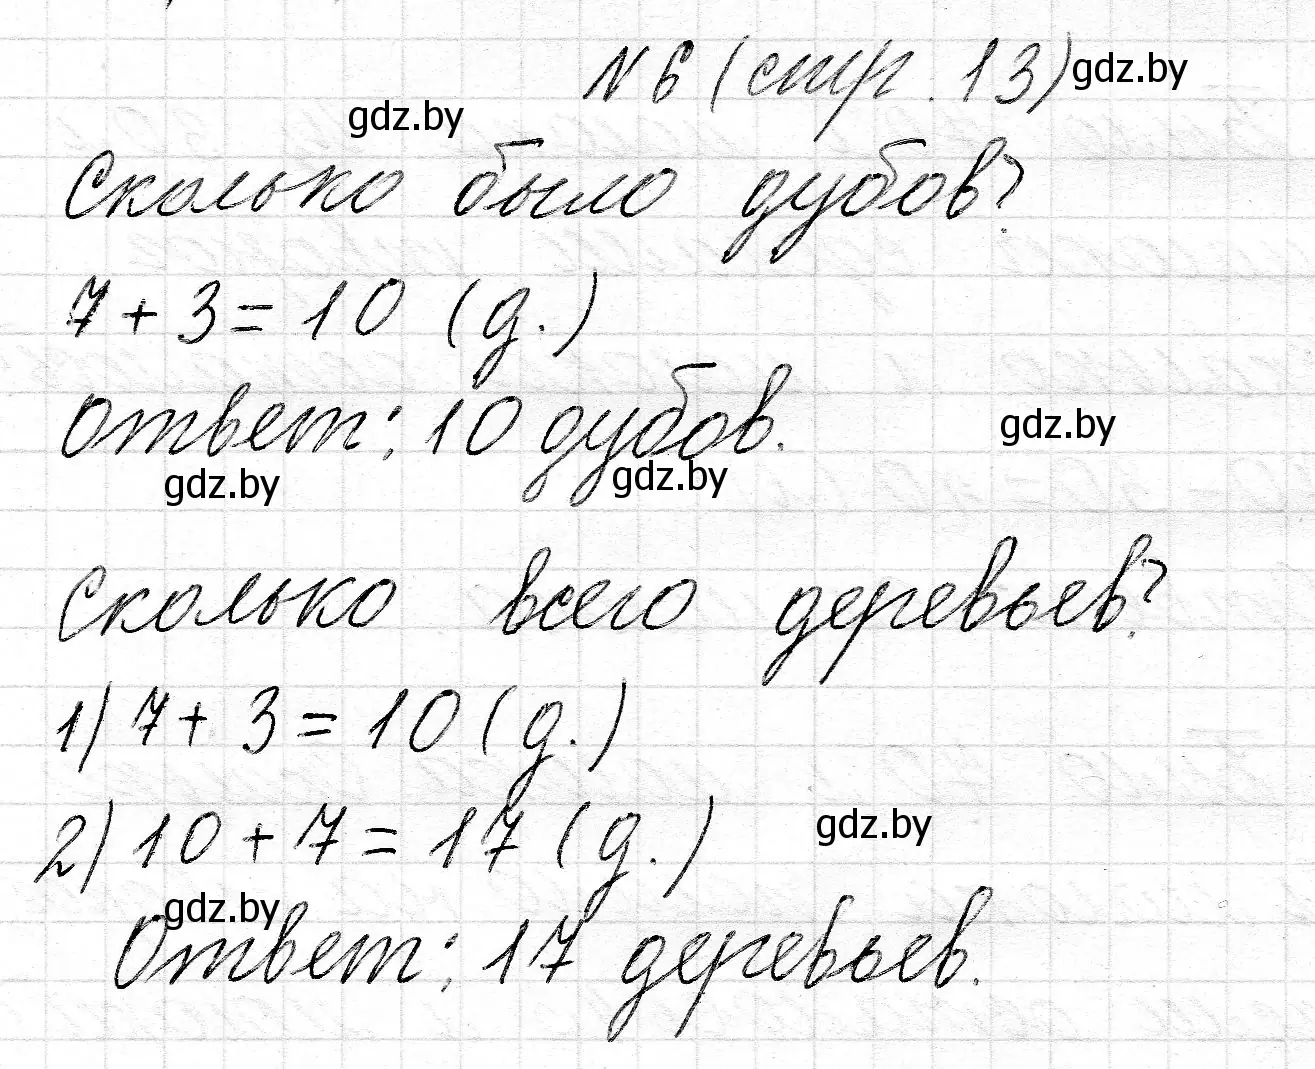 № 6 (стр. 13) gdz.by
gdz.by
Сколько было дубов?
7 + 3 = 10 (д.)
Ответ: 10 дубов.
gdz.by
gdz.by gdz.by
Сколько всего деревьев?
1) 7 + 3 = 10 (д.)
2) 10 + 7 = 17 (д.)
gdz.by
gdz.by
Ответ: 17 деревьев.